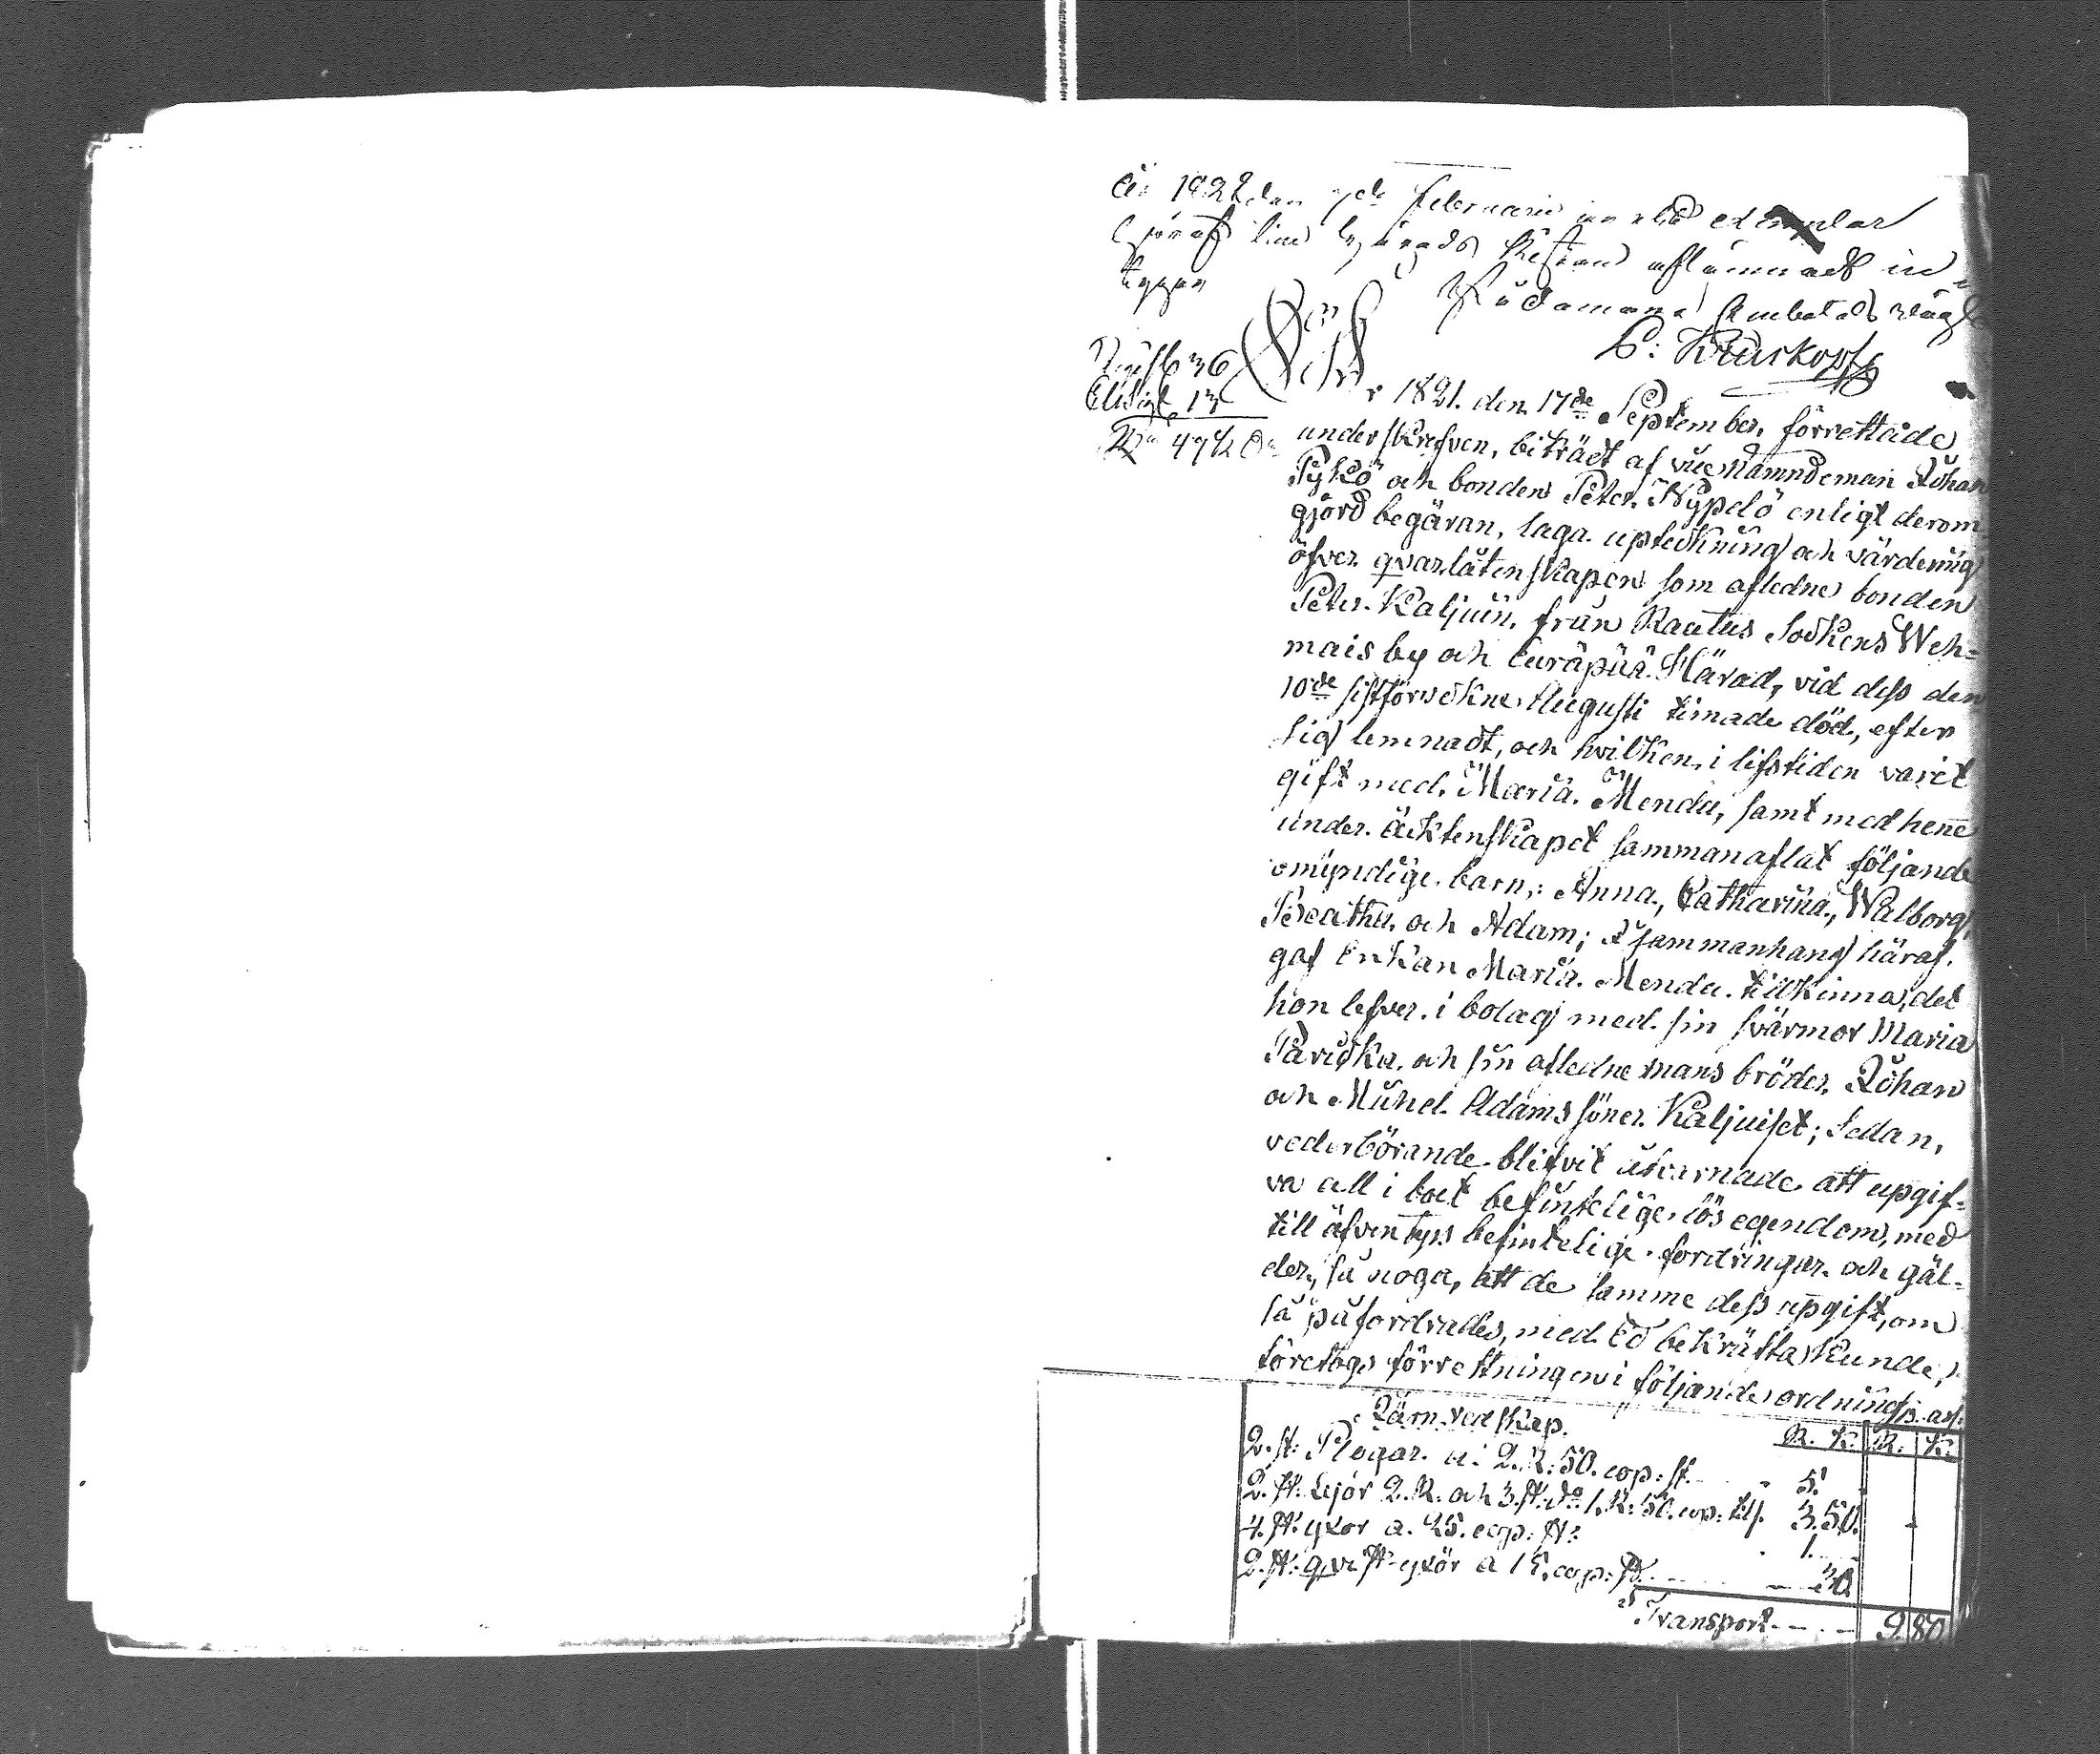 År 1822 den 7de Februarii
R: Kruskopf
År 1821. den 17de September, förrettade
underskrefven, biträdt af Nämndeman Johan
Pykö och bonden Peter Nypelö enligt derom
gjord begäran, laga uptekning och värdering
öfver qvarlåtenskapen som afledne bonden
Peter Kaljuin, från Rautus Sockens Weh=
mais by och Euräpää Härad, vid dess den
10de sistförvekne Augusti timade död, efter
sig lemnadt, och hvilken i lifstiden varit
gift med Maria Menda, samt med henne
under äcktenskapet sammanaflat följande
omyndige barn: Anna, Catharina, Walborg,
Beatha och Adam; I sammanhang häraf
gaf Enkan Maria Menda tillkinna, det
hon lefver i bolag med sin svärmor Maria
och sin afledne mans bröder, Johan
och Michel Adamssöner Kaljuiset; Sedan,
vederbörande blifvit åtvarnade att upgif=
va all i boet befintelige lös egendom, med
till äfventyrs befintelige fordringar och gäl=
der, så noga, att de samme dess upgift, om
så påfordrades, med Ed bekräfta kunde,
företogs förrettningen i följande ordning
Järnredskap. R. K. R. K.
2. st: Plogar a: 2. R: 50. cop: st. 5.
2. st: 2. R. och 3. st. do 1. R: 50. cop: 3. 50.
4. st: yxor a. 25. cop: st: 1.
2. st: qvist yxör a 15. cop: st. 30.
Transport 9. 80